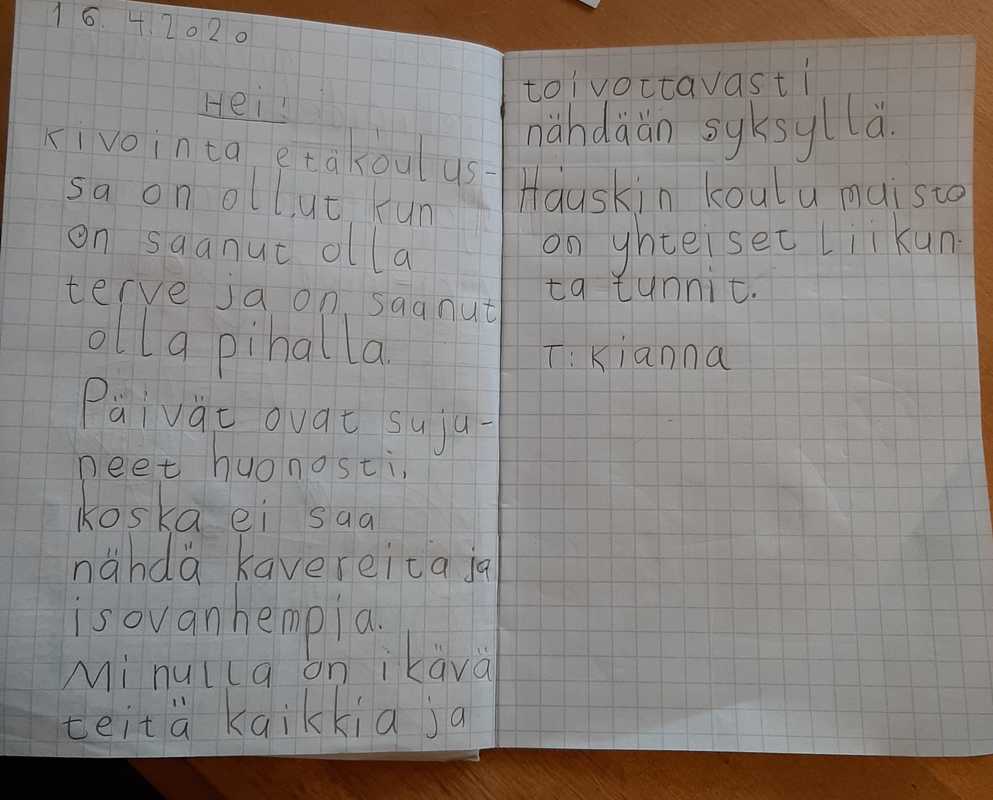 16.4.2020
Hei!
Kivointa etäkoulus-
sa on ollut kun
on saanut olla
terve ja on saanut
olla pihalla.
Päivät ovat suju-
neet huonosti,
koska ei saa
nähdä kavereita ja
isovanhempia.
Minulla on ikävä
teitä kaikkia ja
toivottavasti
nähdään syksyllä.
Hauskin koulu muisto
on yhteiset Liikun-
ta tunnit.
T: Kianna